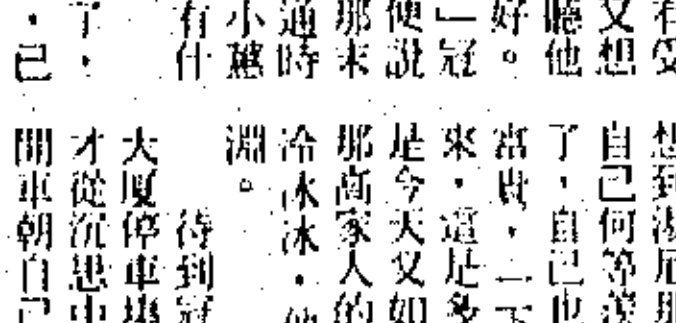 有受
又想
聽他
好。
」冠
便說
那末
通時
小蕙
有什
了，
，已
想到
自己何等羨
了，自己也
富貴，一下
來，這是多
是今天又如
那商家人的
冷冰冰，
淵。
待到冠
大廈停車場
才從沉思中
開車朝自己